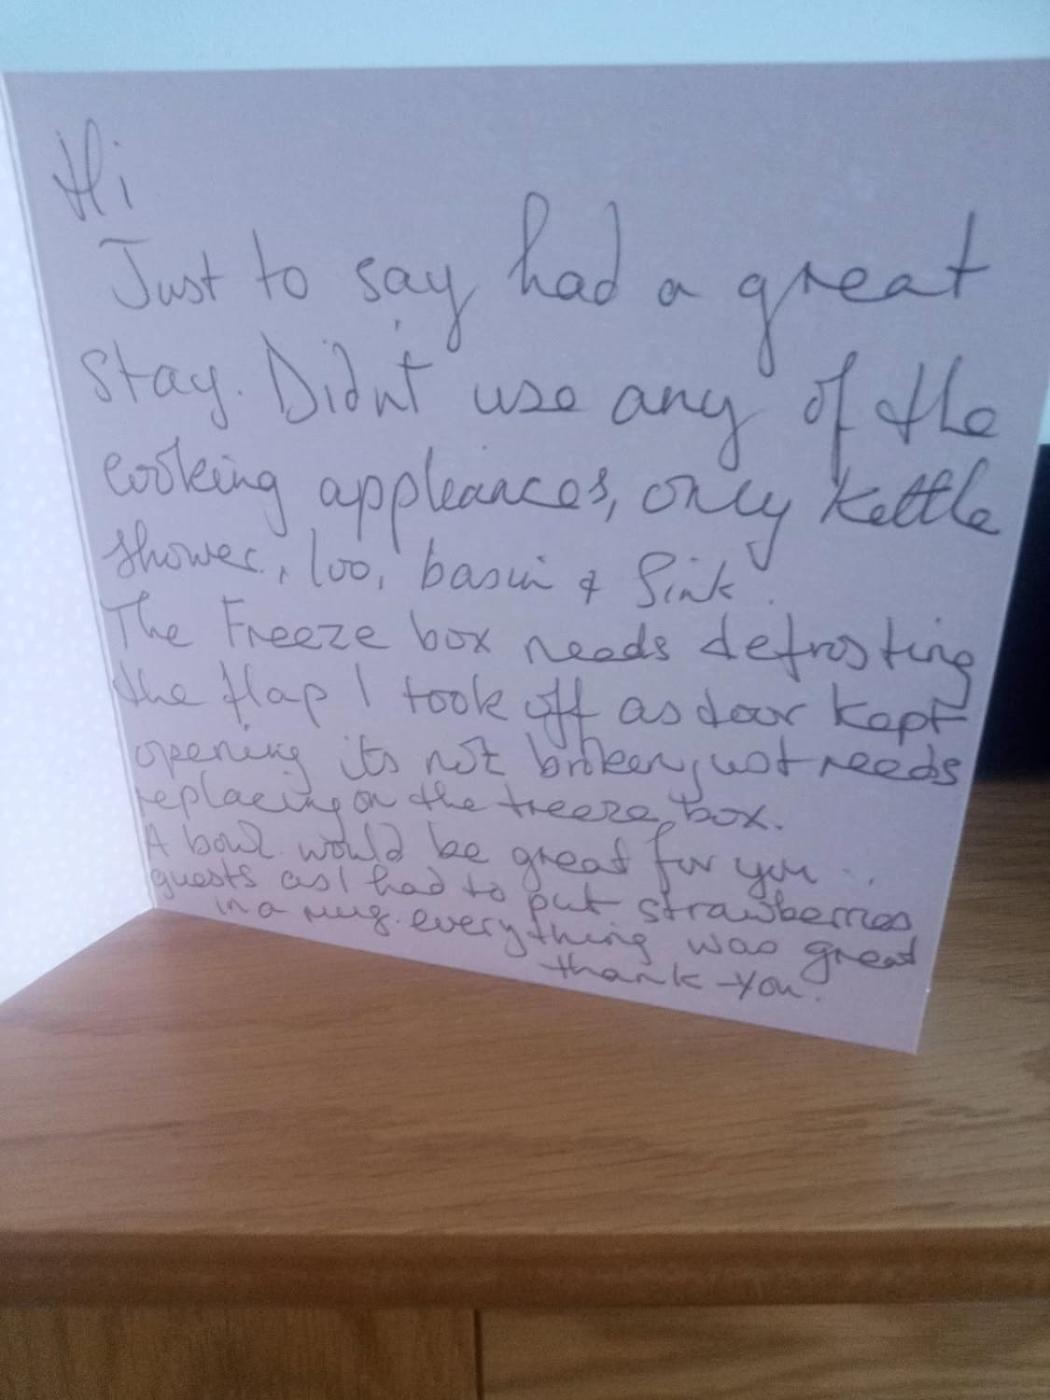 Hi
Just to say had a great
stay. Didn't use any of the
cooking appleances, only kettle
shower, loo, basin & Sink.
The Freeze box needs defrosting
the flap I took off as door kept
opening its not broken, just needs
replacing on the freeze box.
A bowl would be great for your
guests as I had to put strawberries
in a mug. everything was great
thank-you.